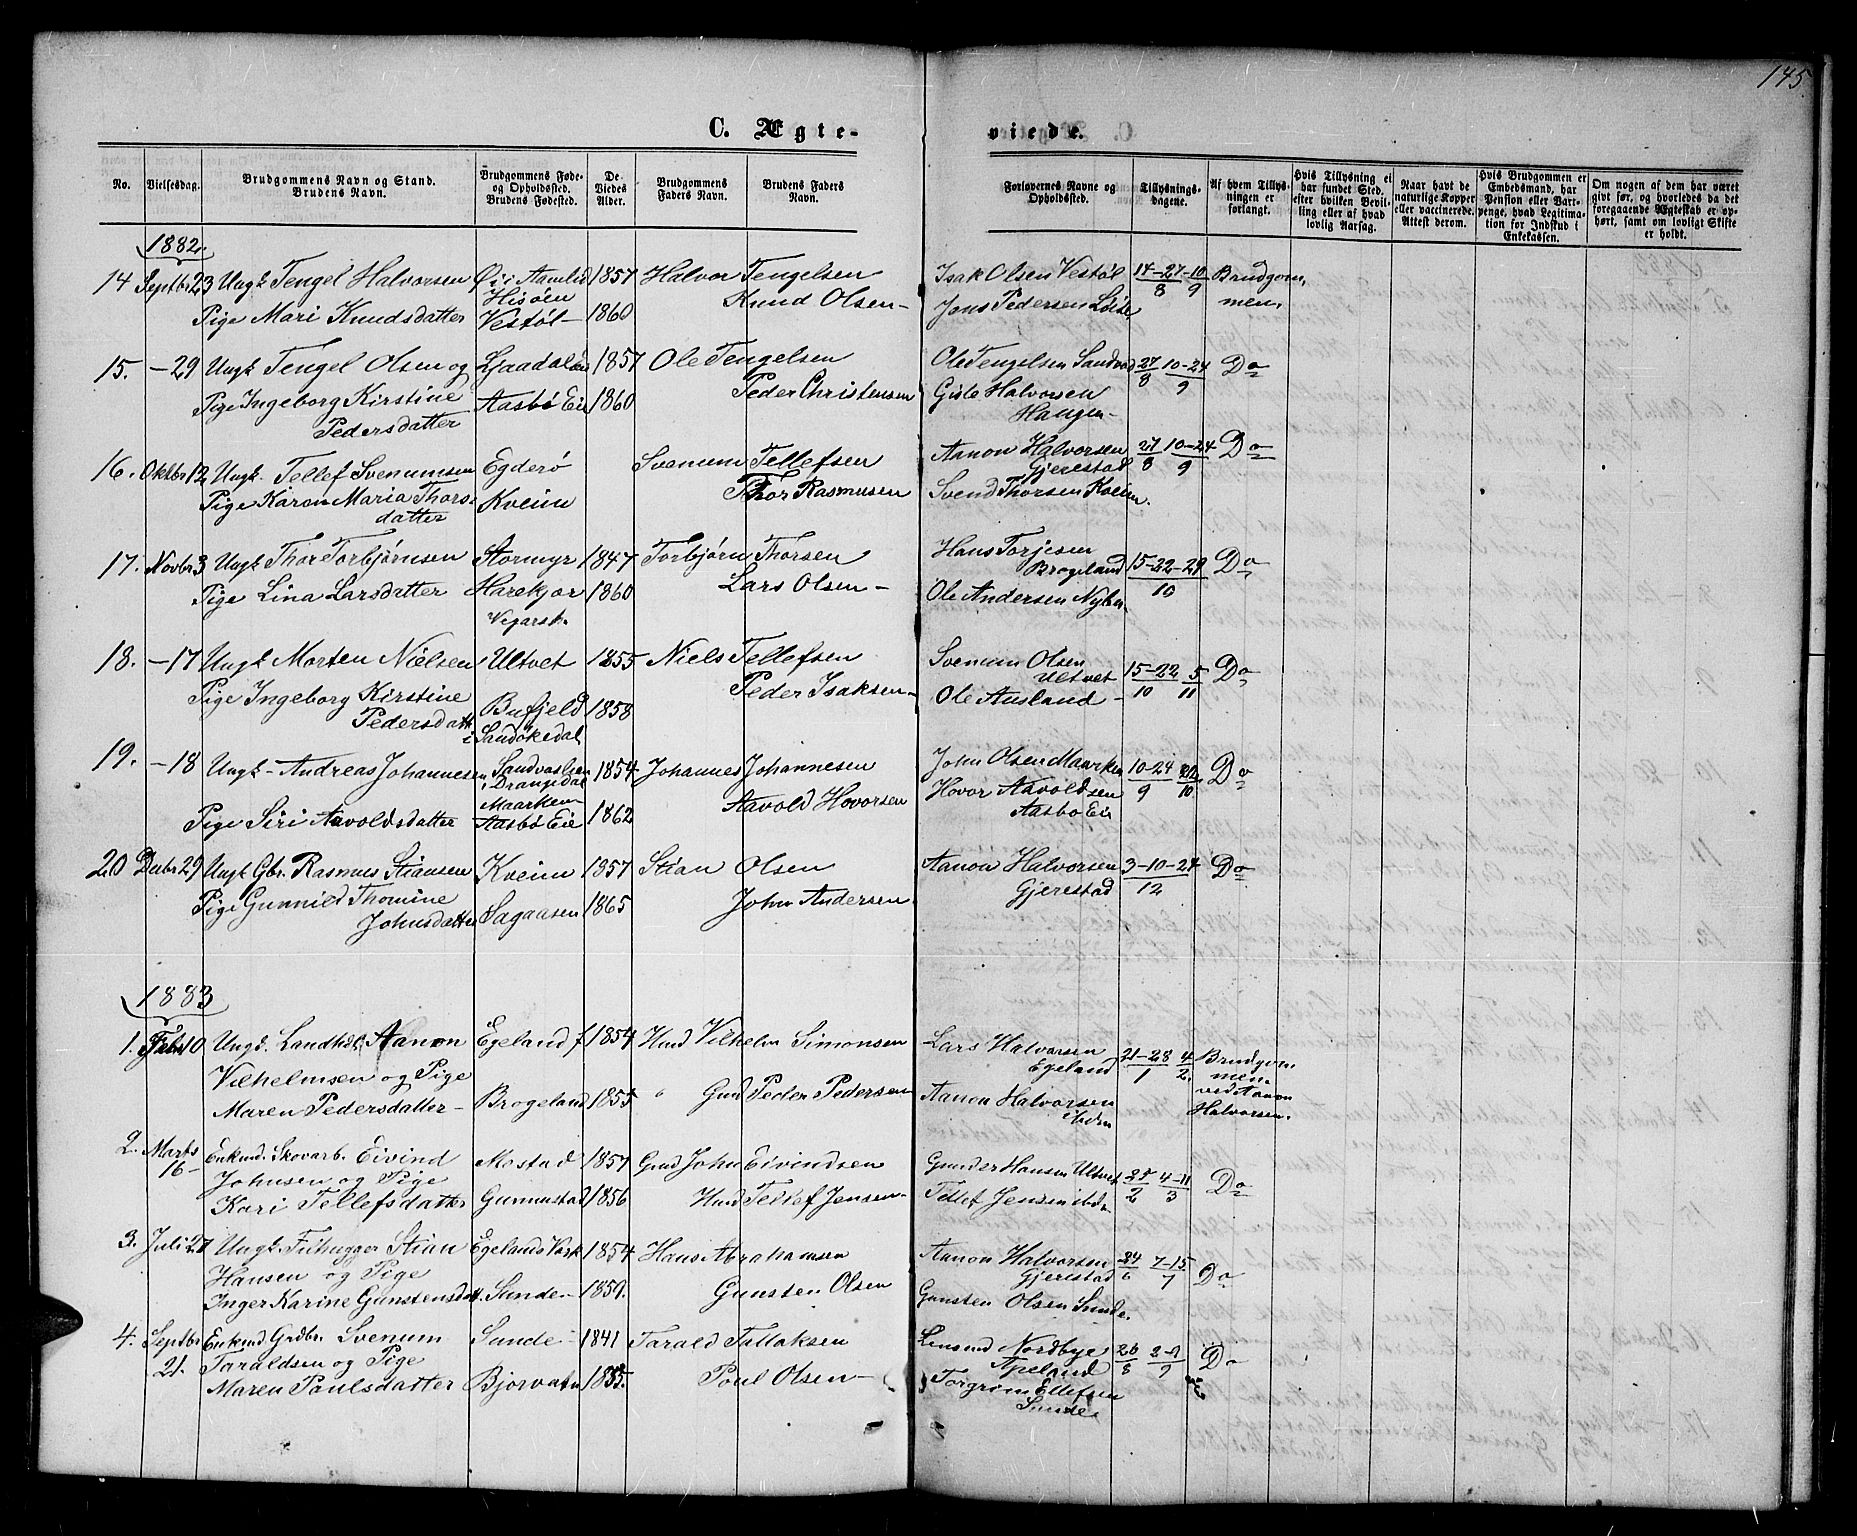 145.
C. Ægte-
viede.
No.
Vielsesdag.
Brudgommens Navn og Stand.
Brudens Navn.
Brudgommens Føde-
og Opholdssted.
Brudens Fødested.
De
Viedes
Alder.
Brudgommens
Faders Navn.
Brudens Faders
Navn.
Forlovernes Navne og
Opholdssted.
Tillysnings-
dagene.
Af hvem Tillys-
ningen er
forlangt.
Hvis Tillysning ei
har fundet Sted,
efter hvilken Bevil-
ling eller af hvad
lovlig Aarsag.
Naar havt de
naturlige Kopper
eller vaccinerede.
Attest derom.
Hvis Brudgommen er
Embedsmand, har
Pension eller Vart-
penge, hvad Legitima-
tion for Indskud i
Enkekassen.
Om nogen af dem har været
givt før, og hvorledes da det
foregaaende Ægteskab er op-
hørt, samt om lovligt Skifte
er holdt.
1882.
14 Septbr 23 Ungk Tengel Halvorsen Øi i Aamlid 1857 Halvor Tengelsen Isak Olsen Vestøl 14-27-10 Brudgom-
Hisøen Knud Olsen- 8 9 men
Pige Mari Knudsdatter Vestøl- 1860 Jens Pedersen
15. -29 Ungk Tengel Olsen og 1857 Ole Tengelsen Ole Tengelsen Sandvod 27 10-24 Do
Pige Ingeborg Kirstine Aasbø Eie 1860 Peder Christensen Gisle Halvorsen 8 9
Pedersdatter Haugen-
16. Oktbr 12 Ungk. Tellef Svenumsen Egderø Svenum Tellefsen Aanon Halvorsen 27 10-24 Do
Gjerestad 8 9
Pige Karen Maria Thors- Kveim Thor Rasmusen Svend Thorsen Kveim.
datter
17. Novbr 3 Ungk Thor Torbjørnsen Stormyr 1847 Torbjørn Thorsen Hans Torjesen
Brogeland 15-22-29 Do
Pige Lina Larsdatter Harekjær 1860 Lars Olsen - Ole Andersen 10
Vegarsh.
18. -17 Ungk Morten Nielsen Ultvet 1855 Niels Tellefsen Svenum Olsen
Ultvet 15-22 5 Do
Pige Ingeborg Kirstine Peder Isaksen- Ole Ausland - 10 11
Pedersdatt. Bufjeld 1858
i Sandøkedal
19. -18 Ungk- Andreas Johannesen 1854 Johannes Johannesen John Olsen Maarken 10-24 22 Do
i Drangedal 9 10
Maarken Aavold Hovorsen Hovor Aavoldsen
Pige Siri Aavoldsdatter Aasbø Eie 1862 Aasbø Eie
20 Decbr 29 Ungk Gbr. Rasmus Stiansen Kveim 1857 Stian Olsen Aanon Halvorsen 3-10-24 Do
Gjerestad 12
Pige Gunnild Thomine Sagaasen 1865 John Andersen
Johnsdatter
1883
1. Febr 10 Ungk. Landhdl. Aanon Egeland f 1854 Hmd Vilhelm Simonsen Lars Halvorsen 21-28 4 Brudgom-
Egeland 1 2 men
Vilhelmsen og Pige ved Aanon
Maren Pedersdatter- Brogeland 1855 " Gmd Peder Pedersen Aanon Halvorsen Halvorsen.
2. Marts Enkmd. Skovarb. Eivind Mostad 1857 Gmd John Eivindsen Gunder Hansen Ultvet 25 4-11 Do
16- Johnsen og Pige 2 3
Kari Tellefsdatter Gunnustad 1856 Hmd Tellef Jensen- Tellef Jensen
3. Juli 21 Ungk. Filhugger Stian Egelands Verk 1854 Hans Abrahamsen Aanon Halvorsen 24 7-15 Do
Hansen og Pige Gjerestad 6 7
Inger Karine Gunstensdatt. Sunde- 1859. Gunsten Olsen Gunsten Olsen Sunde.
4. Septbr Enkmd Grdbr. Svenum Sunde - 1841 Tarald Tallaksen Lensmd Nordbye 26 2-9 Do
21. Taraldsen og Pige Apeland 8 9
Maren Poulsdatter Bjorvatn 1855. Poul Olsen - Torgrim Ellefsen
Sunde